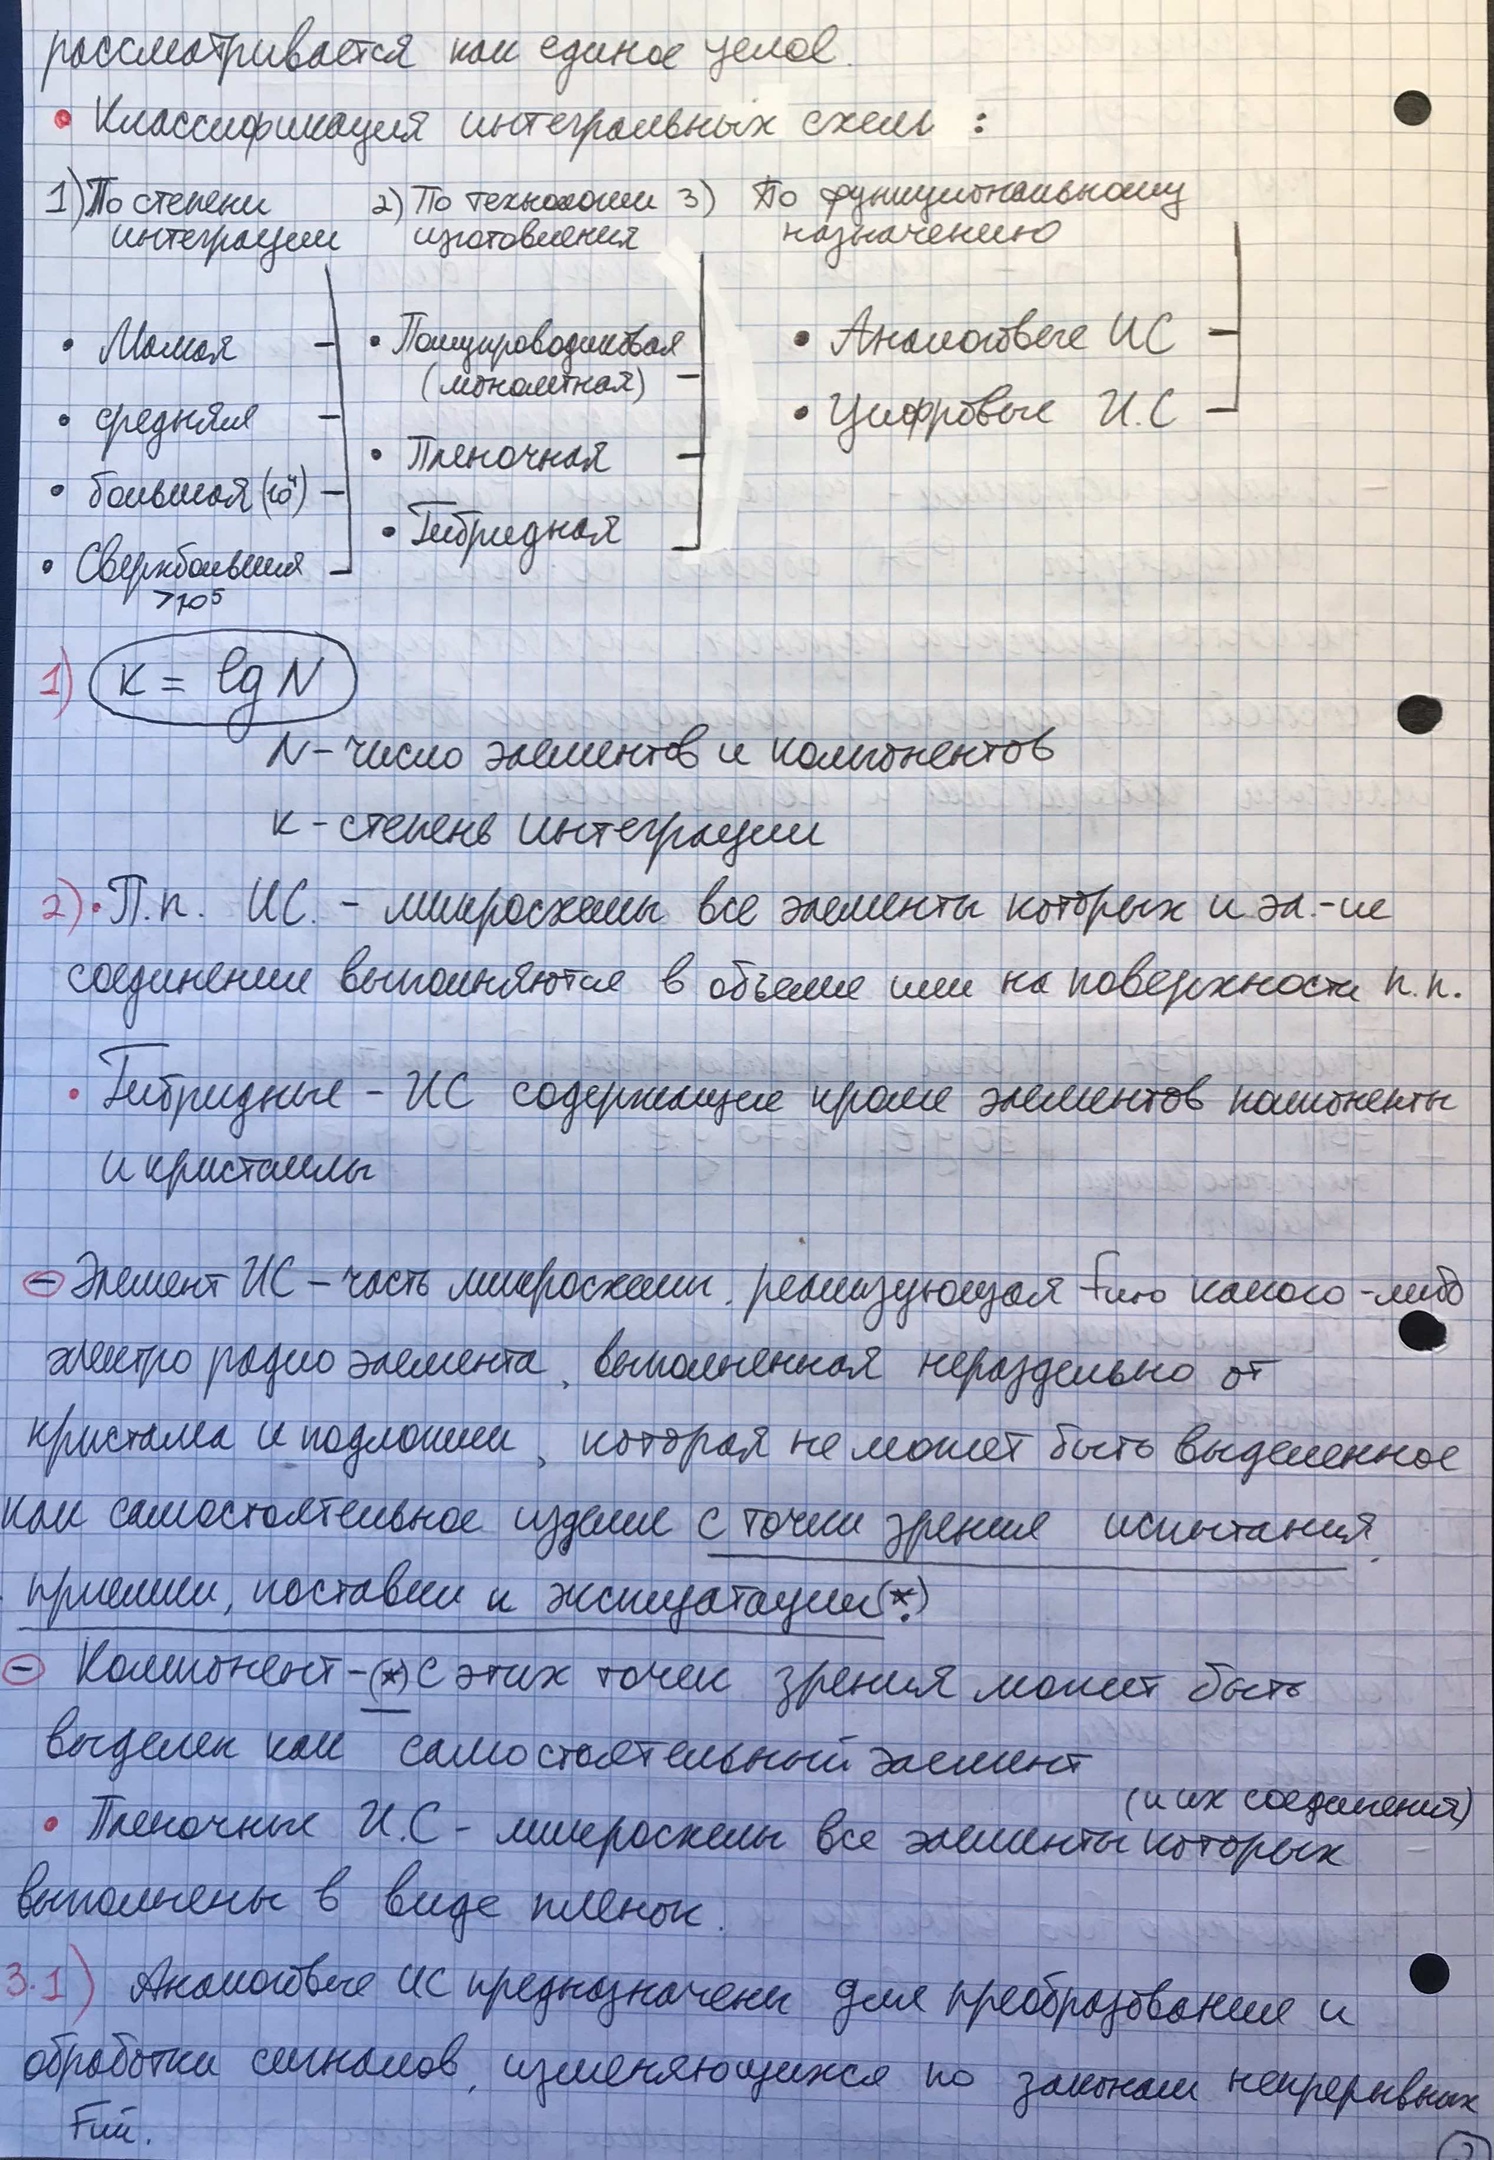 рассматривается как единое целое.
• Классификация интегральных схем :
1) По степени интеграции
2) По технологии изготовления
3) По функциональному назначению
• Малая
• средняя
• большая (10⁴)
• Сверхбольшая
>10⁵
• Полупроводниковая
(монолитная)
• Пленочная
• Гибридная
• Аналоговые ИС
• Цифровые И.С
1) K = lg N
N – число элементов и компонентов
K – степень интеграции
2) • П.п. ИС. – микросхемы все элементы которых и эл.-ие
соединении выполняются в объеме или на поверхности п.п.
• Гибридные – ИС содержащие кроме элементов компоненты
и кристаллы
– Элемент ИС – часть микросхемы, реализующая Fию какого-либо
электро радио элемента, выполненная нераздельно от
кристалла и подложки, которая не может быть выделенное
как самостоятельное изделие с точки зрения испытания,
приемки, поставки и эксплуатации(*.)
– Компонент – (*) с этих точек зрения может быть
выделен как самостоятельный элемент
(и их соединения)
• Пленочные И.С – микросхемы все элементы которых
выполнены в виде пленок.
3.1) Аналоговые ИС предназначены для преобразование и
обработки сигналов, изменяющихся по законам непрерывных
Fий.